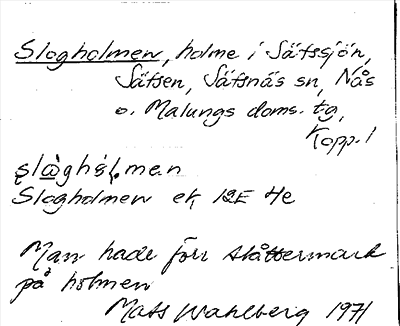 Slogholmen, holme i Sätssjön,
Sätsen, Sätsnäs sn, Nås
o. Malungs doms. tg,
Kopp. l
Slogholmen ek 12E 4e
Man hade förr slåttermark
på holmen
Mats Wahlberg 1971